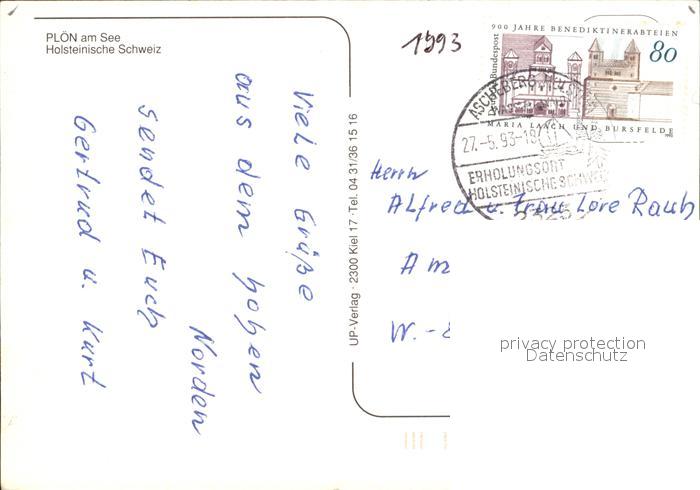 PLÖN am See
Holsteinische Schweiz
Viele Grüße
aus dem hohen
Norden
sendet Euch
Gertrud u. Kurt
UP-Verlag · 2300 Kiel 17 · Tel. 04 31/36 15 16
1993
900 JAHRE BENEDIKTINERABTEIEN
Deutsche Bundespost
80
MARIA LAACH UND BURSFELDE
ASCHEBERG HOLST
27.-5.93-18
ERHOLUNGSORT
HOLSTEINISCHE SCHWEIZ
Herrn
Alfred u. Frau Lore Rauh
Am
W.-
privacy protection
Datenschutz